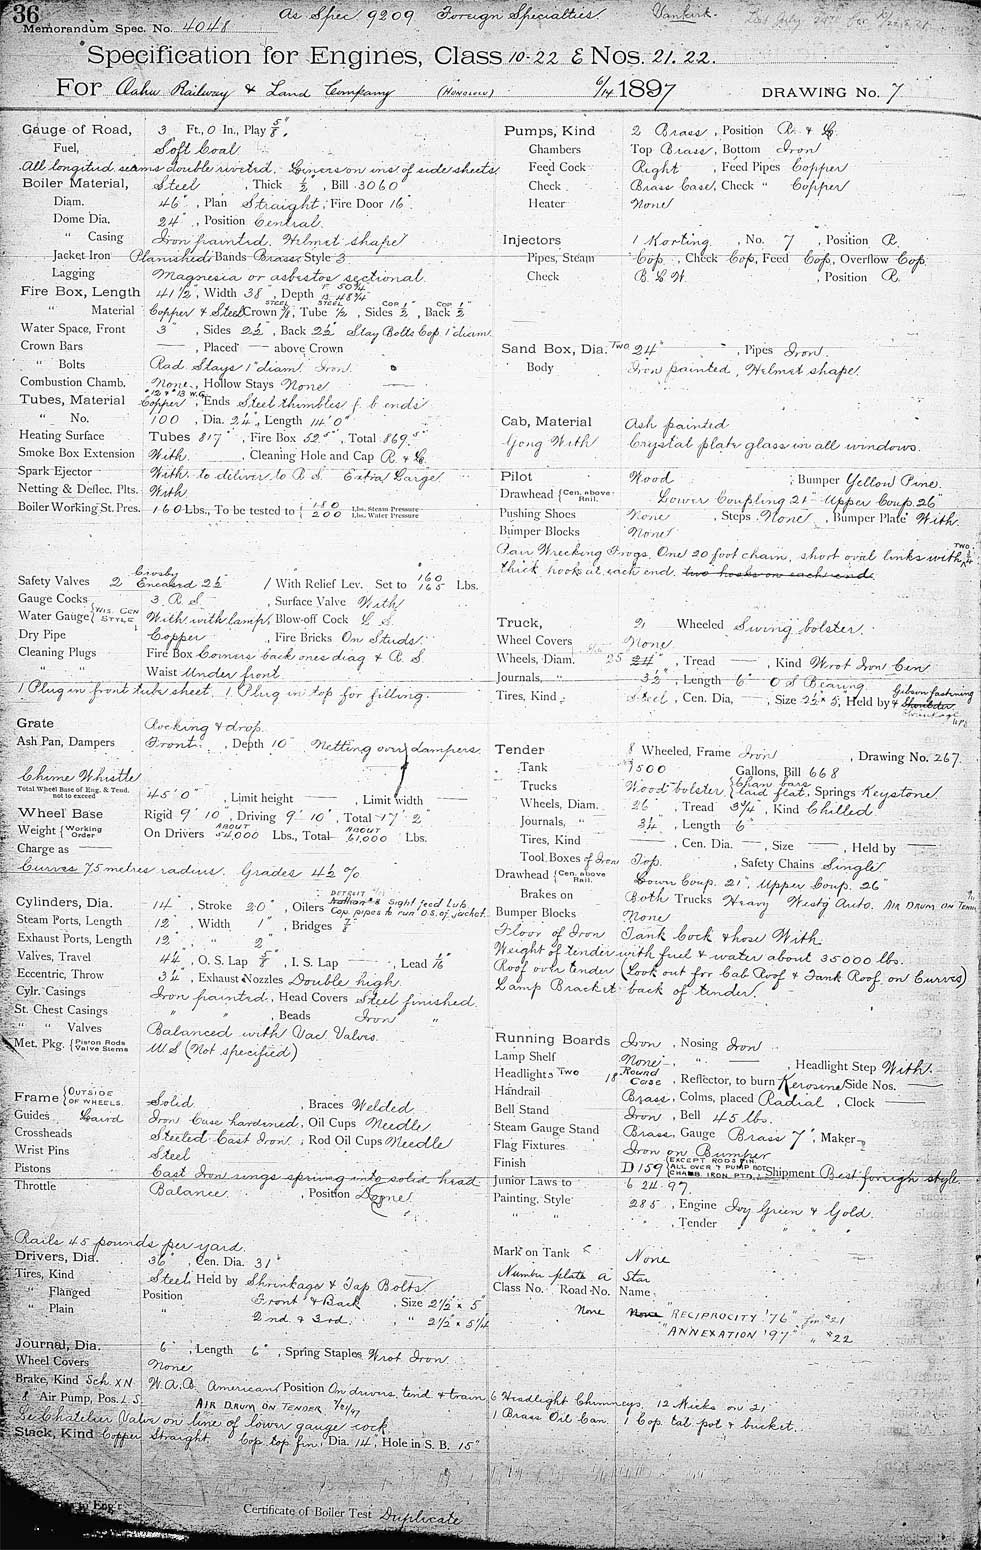 36
As Spec 9209 Foreign Specialties. Vankirk
Memorandum Spec. No. 4048
Specification for Engines, Class 10-22 E Nos. 21. 22.
For Oahu Railway & Land Company (HONOLULU) 6/14 1897 DRAWING No. 7
Gauge of Road, 3 Ft., 0 In., Play 5/8".
Fuel, Soft Coal
All longitud seams double riveted. Liners on ins. of side sheets.
Boiler Material, Steel, Thick ½", Bill 3060
Diam. 46", Plan Straight, Fire Door 16"
Dome Dia. 24", Position Central.
" Casing Iron painted. Helmet shape
Jacket Iron Planished, Bands Brass, Style 3
Lagging Magnesia or asbestos sectional.
Fire Box, Length 41½", Width 38", Depth F 50¾ B 48¾"
" Material Copper & Steel Crown STEEL 3/8, Tube STEEL ½, Sides COP ½", Back COP ½"
Water Space, Front 3", Sides 2½", Back 2½" Stay Bolts Cop. 1" diam.
Crown Bars — , Placed — above Crown
" Bolts Rad. Stays 1" diam. Iron.
Combustion Chamb. None, Hollow Stays None
Tubes, Material Copper #12 & #13 W.G., Ends Steel thimbles f. b ends
" No. 100, Dia. 2¼", Length 14' 0"
Heating Surface Tubes 817, Fire Box 52.5, Total 869.5
Smoke Box Extension With, Cleaning Hole and Cap R & L.
Spark Ejector With. to deliver to R S. Extra Large
Netting & Deflec. Plts. With
Boiler Working St. Pres. 160 Lbs., To be tested to { 180 Lbs. Steam Pressure 200 Lbs. Water Pressure
Safety Valves 2 Crosby Encased 2½" 1 With Relief Lev. Set to 160 165 Lbs.
Gauge Cocks 3. R. S., Surface Valve With
Water Gauge { WIS. CEN STYLE With with lamp, Blow-off Cock L. S.
Dry Pipe Copper, Fire Bricks On Studs.
Cleaning Plugs Fire Box Corners back ones diag & R. S.
" " Waist Under front
1 Plug in front tube sheet. 1 Plug in top for filling.
Grate Rocking & drop.
Ash Pan, Dampers Front, Depth 10" Netting over dampers.
Chime Whistle
Total Wheel Base of Eng. & Tend. not to exceed 45' 0", Limit height —, Limit width —
Wheel Base Rigid 9' 10", Driving 9' 10", Total 17' 2"
Weight { Working Order On Drivers ABOUT 54,000 Lbs., Total ABOUT 61,000 Lbs.
Charge as —
Curves 75 metres radius. Grades 4½ %
Cylinders, Dia. 14", Stroke 20", Oilers DETROIT Nathan #8 Sight feed Lub Cop. pipes to run O.S. of jacket.
Steam Ports, Length 12", Width 1", Bridges 7/8"
Exhaust Ports, Length 12", " 2"
Valves, Travel 4¼, O. S. Lap 5/8", I. S. Lap —, Lead 1/16"
Eccentric, Throw 3¼", Exhaust Nozzles Double high.
Cylr. Casings Iron painted, Head Covers Steel finished.
St. Chest Casings " ", Beads Iron "
" " Valves Balanced with Vac. Valves.
Met. Pkg. { Piston Rods Valve Stems U S (Not specified)
Frame { OUTSIDE OF WHEELS. Solid, Braces Welded
Guides Laird Iron Case hardened, Oil Cups Needle
Crossheads Steeled Cast Iron, Rod Oil Cups Needle
Wrist Pins Steel
Pistons Cast Iron rings sprung into solid head
Throttle Balance, Position Dome
Rails 45 pounds per yard.
Drivers, Dia. 36", Cen. Dia. 31"
Tires, Kind Steel, Held by Shrinkage & Tap Bolts
" Flanged Position Front & Back, Size 2½" x 5"
" Plain " 2nd & 3rd, " 2½" x 5¼
Journal, Dia. 6", Length 6", Spring Staples Wrot Iron
Wheel Covers None
Brake, Kind Sch. XN W.A.B. American, Position On drivers, tend & train
8" Air Pump, Pos. L S AIR DRUM ON TENDER
Le Chatelier Valve on line of lower gauge cock
Stack, Kind Copper Straight. Cop. top fin., Dia. 14", Hole in S. B. 15"
Certificate of Boiler Test Duplicate
Pumps, Kind 2 Brass, Position R. & L.
Chambers Top Brass, Bottom Iron
Feed Cock Right, Feed Pipes Copper
Check Brass Case, Check " Copper
Heater None
Injectors 1 Korting, No. 7, Position R.
Pipes, Steam Cop., Check Cop, Feed Cop, Overflow Cop.
Check B. L. W., Position R.
Sand Box, Dia. Two 24", Pipes Iron.
Body Iron painted, Helmet shape.
Cab, Material Ash painted
Gong With Crystal plate glass in all windows.
Pilot Wood; Bumper Yellow Pine.
Drawhead { Cen. above Rail. Lower Coupling 21" Upper Coup. 26"
Pushing Shoes None, Steps None, Bumper Plate With.
Bumper Blocks None
Pair Wrecking Frogs, One 20 foot chain, short oval links with TWO ¾"
thick, hook at each end. two hooks on each end.
Truck, 2 Wheeled Swing bolster.
Wheel Covers None
Wheels, Diam. 25 24", Tread —, Kind Wrot Iron Cen
Journals, " 3½", Length 6" O S Bearing
Tires, Kind Steel, Cen. Dia, —, Size 2½ x 5", Held by Gibson fastening & Shoulder
Tender 8 Wheeled, Frame Iron, Drawing No. 267.
Tank 1500 Gallons, Bill 668
Trucks Wood bolster { Chan. bars laid flat, Springs Keystone
Wheels, Diam. 26", Tread 3¾", Kind Chilled
Journals, " 3¼", Length 6"
Tires, Kind —, Cen. Dia. —, Size —, Held by —
Tool Boxes of Iron Top, Safety Chains Single
Drawhead { Cen. above Rail. Lower Coup. 21". Upper Coup. 26"
Brakes on Both Trucks Heavy West'g Auto. AIR DRUM ON TEND
Bumper Blocks None
Floor of Iron Tank Cock & hose With.
Weight of tender with fuel & water about 35000 lbs.
Roof over tender (Look out for Cab Roof & Tank Roof on Curves)
Lamp Bracket back of tender.
Running Boards Iron, Nosing Iron
Lamp Shelf None, " —, Headlight Step With.
Headlights Two 18" Round Case, Reflector, to burn Kerosine Side Nos. —
Handrail Brass, Colms, placed Radial, Clock —
Bell Stand Iron, Bell 45 lbs.
Steam Gauge Stand Brass, Gauge Brass 7", Maker
Flag Fixtures Iron on Bumper
Finish D 159 { EXCEPT RODS FIN. ALL OVER & PUMP BOT CHAMB. IRON PTD., Shipment Best foreign style.
Junior Laws to 6 24. 97.
Painting, Style 285, Engine Ivy Green & Gold.
" " ", Tender " " "
Mark on Tank None
Number plate a Star
Class No. Road No. Name
None None "RECIPROCITY '76" for #21
"ANNEXATION '97" " #22
6 Headlight Chimneys. 12 Wicks on 21
1 Brass Oil Can. 1 Cop. tal. pot & bucket.